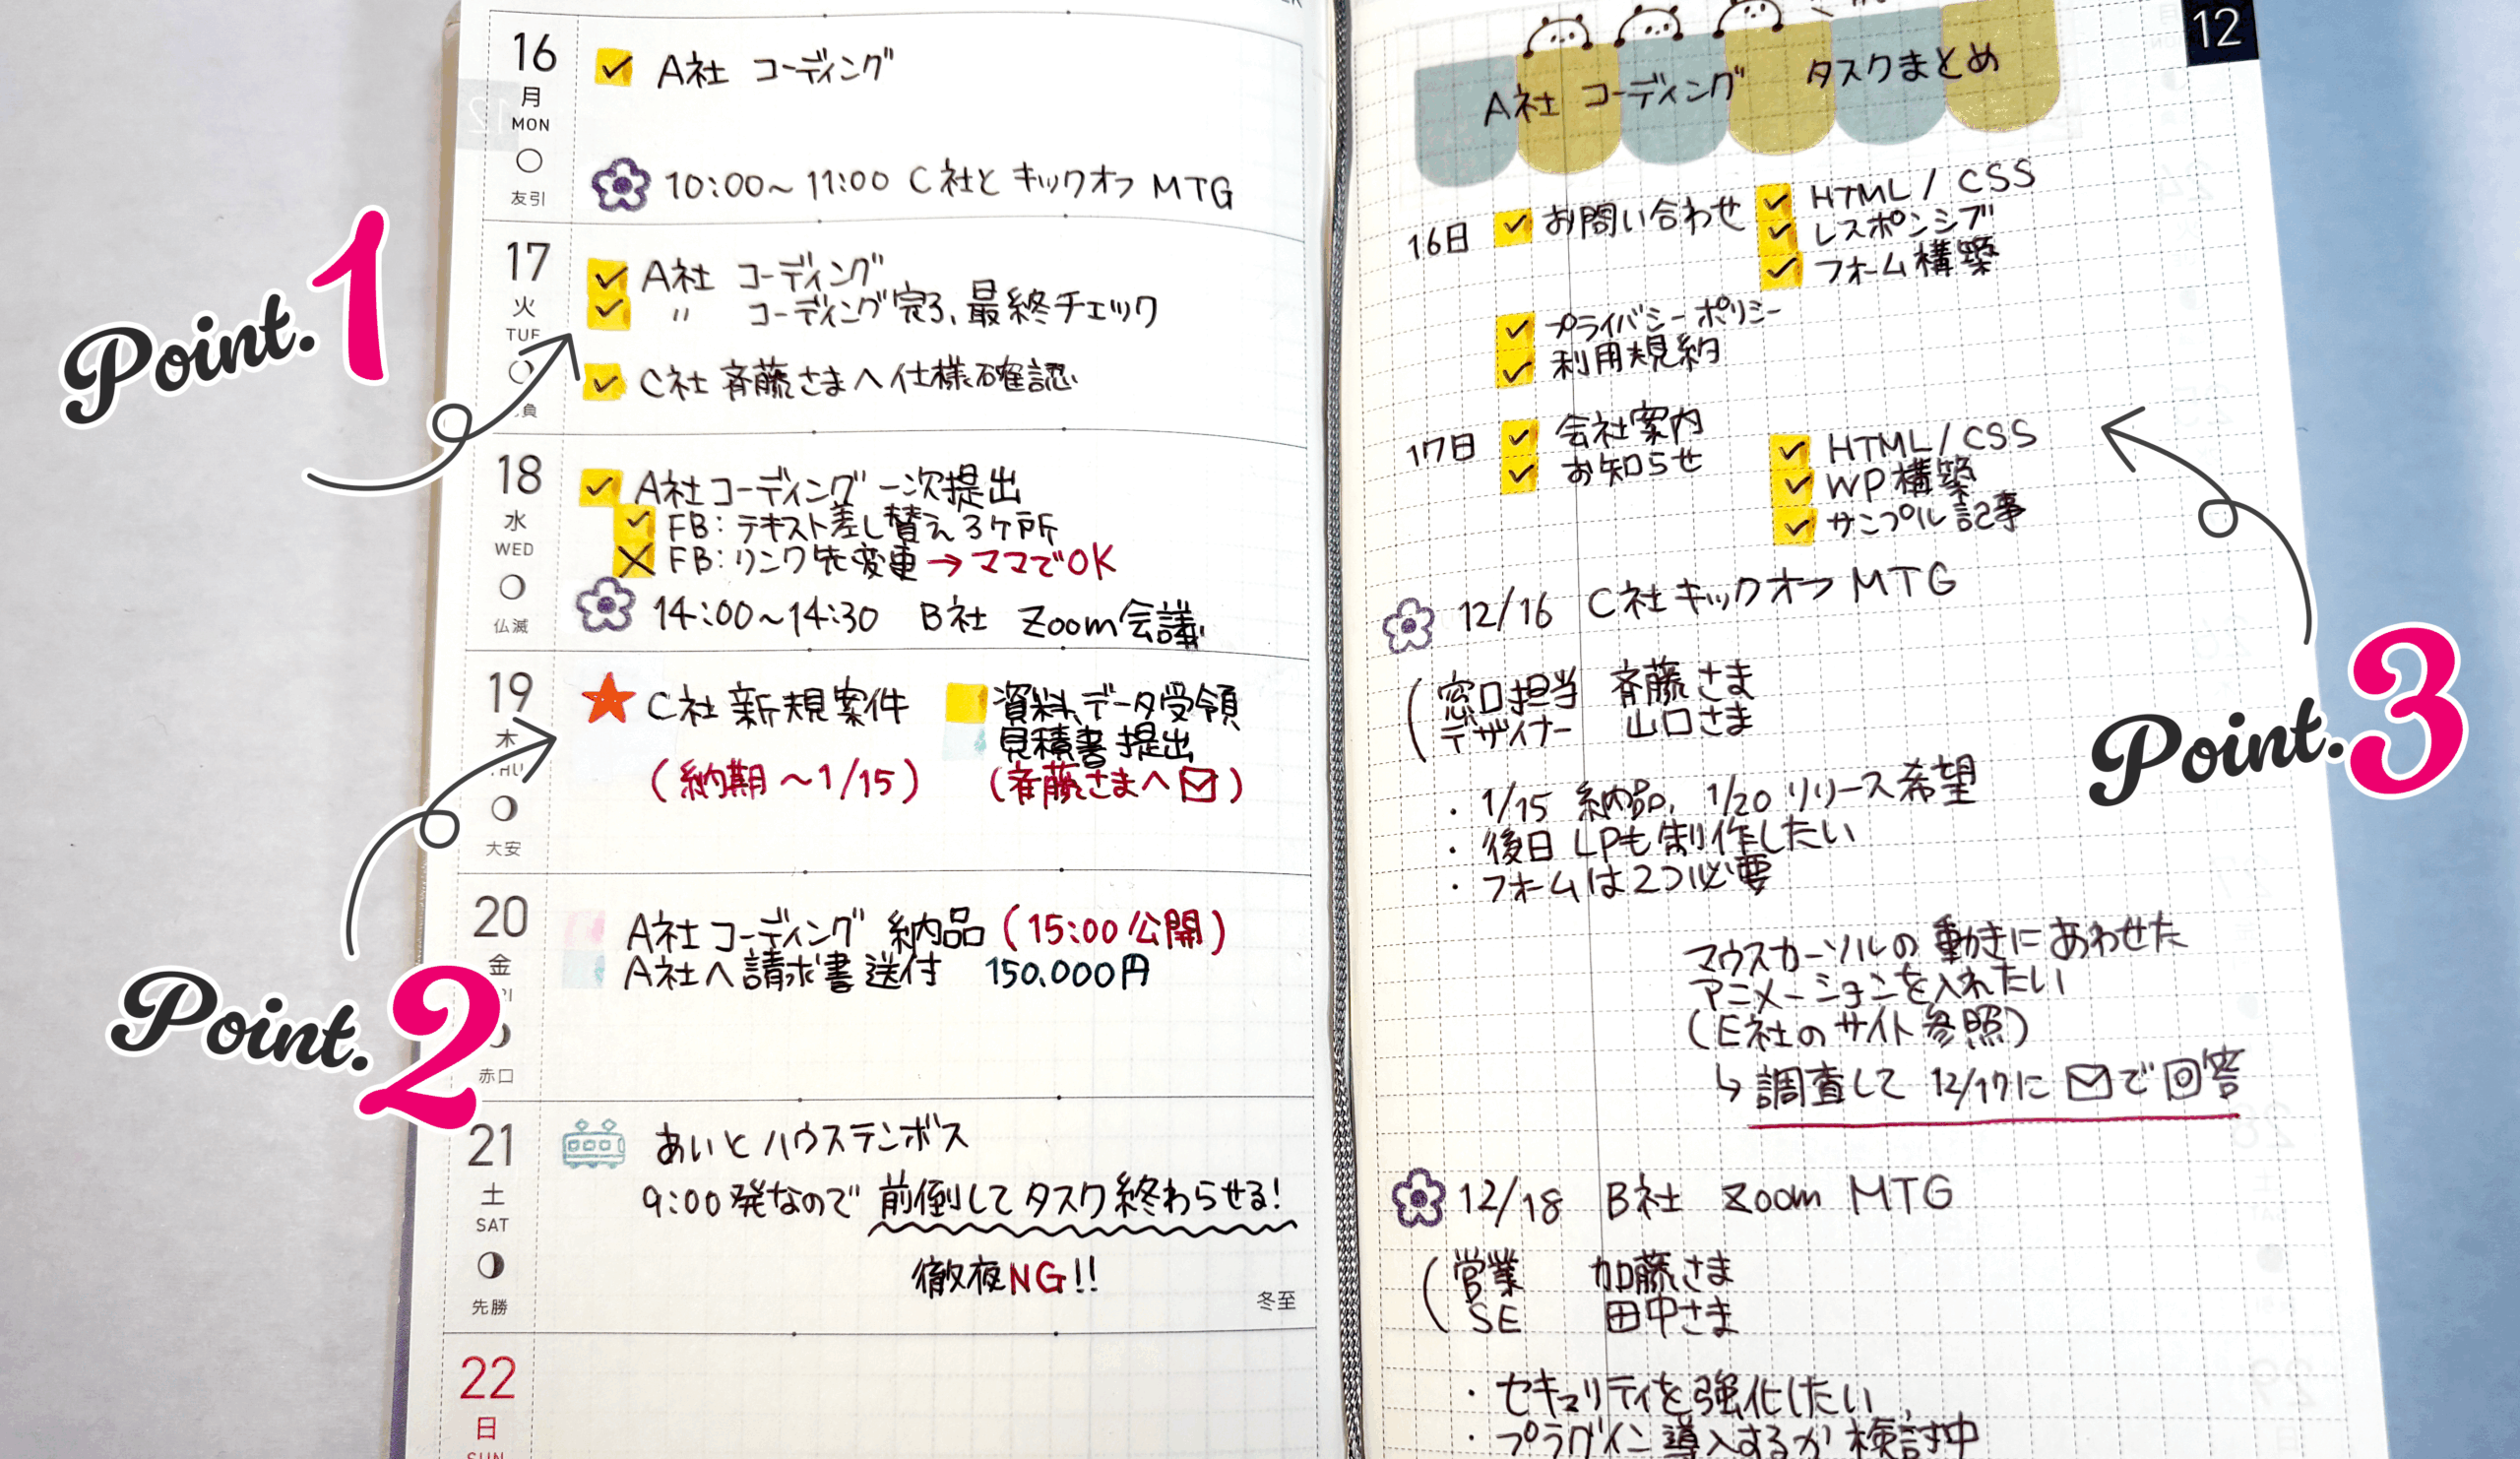 16
月
MON
友引
A社 コーディング
10:00〜11:00 C社と キックオフ MTG
17
火
TUE
負
A社 コーディング
〃 コーディング完了、最終チェック
C社 斉藤さまへ仕様確認
18
水
WED
仏滅
A社コーディング 一次提出
FB:テキスト差し替え3ヶ所
FB:リンク先変更→ママでOK
14:00〜14:30 B社 Zoom会議
19
木
THU
大安
C社 新規案件
(納期〜1/15)
資料、データ受領
見積書 提出
(斉藤さまへ)
20
金
赤口
A社コーディング 納品(15:00 公開)
A社へ請求書 送付 150.000円
21
土
SAT
先勝
あいと ハウステンボス
9:00発なので 前倒してタスク終わらせる!
徹夜NG!!
冬至
22
日
SUN
12
A社 コーディング タスクまとめ
16日 お問い合わせ
HTML / CSS
レスポンシブ
フォーム構築
プライバシーポリシー
利用規約
17日 会社案内
お知らせ
HTML/CSS
WP構築
サンプル記事
12/16 C社キックオフ MTG
(窓口担当 斉藤さま
デザイナー 山口さま
・1/15 納品、1/20リリース希望
・後日 LPも制作したい
・フォームは2つ必要
マウスカーソルの動きにあわせた
アニメーションを入れたい
(E社のサイト参照)
↳調査して 12/17に で回答
12/18 B社 Zoom MTG
(営業 加藤さま
SE 田中さま
・セキュリティを強化したい
・プラグイン導入するか検討中
Point.1
Point.2
Point.3